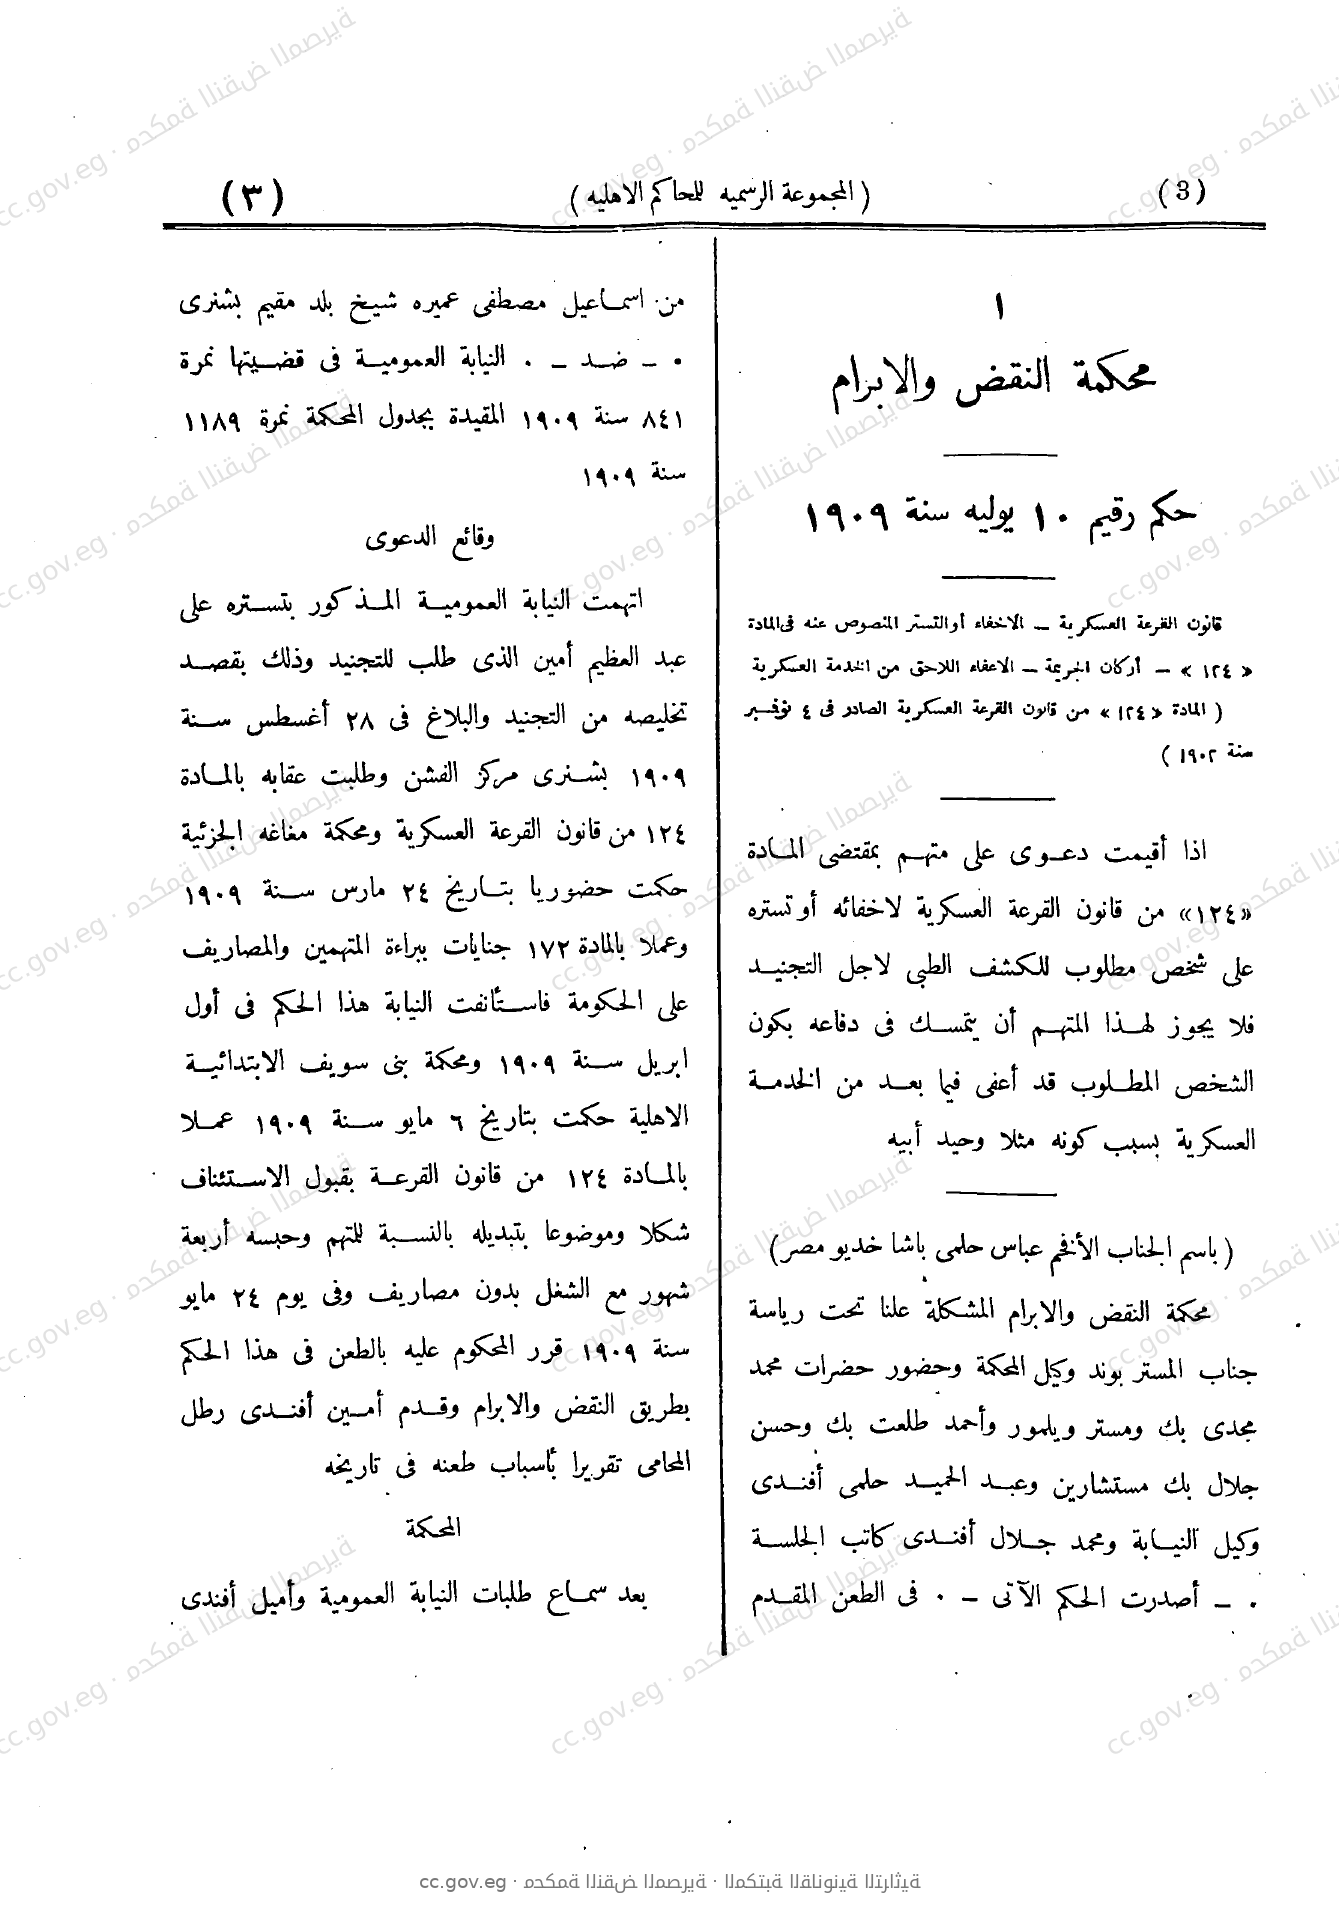 (3) (المجموعة الرسميه للمحاكم الاهليه) (٣)
١
محكمة النقض والابرام
حكم رقيم ١٠ يوليه سنة ١٩٠٩
قانون القرعة العسكرية – الاخفاء أو التستر المنصوص عنه فى المادة
«١٢٤» – أركان الجريمة – الاعفاء اللاحق من الخدمة العسكرية
(المادة «١٢٤» من قانون القرعة العسكرية الصادر فى ٤ نوفمبر
سنة ١٩٠٢)
اذا أقيمت دعوى على متهم بمقتضى المادة
«١٢٤» من قانون القرعة العسكرية لاخفائه أو تستره
على شخص مطلوب للكشف الطبى لاجل التجنيد
فلا يجوز لهذا المتهم أن يتمسك فى دفاعه بكون
الشخص المطلوب قد أعفى فيما بعد من الخدمة
العسكرية بسبب كونه مثلا وحيد أبيه
(باسم الجناب الأفخم عباس حلمى باشا خديو مصر)
محكمة النقض والابرام المشكلة علنا تحت رياسة
جناب المستر بوند وكيل المحكمة وحضور حضرات محمد
مجدى بك ومستر ويلمور وأحمد طلعت بك وحسن
جلال بك مستشارين وعبد الحميد حلمى أفندى
وكيل النيابة ومحمد جلال أفندى كاتب الجلسة
٠ – أصدرت الحكم الآتى – ٠ فى الطعن المقدم
من اسماعيل مصطفى عميره شيخ بلد مقيم بشنرى
٠ – ضد – ٠ النيابة العمومية فى قضيتها نمرة
٨٤١ سنة ١٩٠٩ المقيدة بجدول المحكمة نمرة ١١٨٩
سنة ١٩٠٩
وقائع الدعوى
اتهمت النيابة العمومية المذكور بتستره على
عبد العظيم أمين الذى طلب للتجنيد وذلك بقصد
تخليصه من التجنيد والبلاغ فى ٢٨ أغسطس سنة
١٩٠٩ بشنرى مركز الفشن وطلبت عقابه بالمادة
١٢٤ من قانون القرعة العسكرية ومحكمة مغاغه الجزئية
حكمت حضوريا بتاريخ ٢٤ مارس سنة ١٩٠٩
وعملا بالمادة ١٧٢ جنايات ببراءة المتهمين والمصاريف
على الحكومة فاستأنفت النيابة هذا الحكم فى أول
ابريل سنة ١٩٠٩ ومحكمة بنى سويف الابتدائية
الاهلية حكمت بتاريخ ٦ مايو سنة ١٩٠٩ عملا
بالمادة ١٢٤ من قانون القرعة بقبول الاستئناف
شكلا وموضوعا بتبديله بالنسبة للمتهم وحبسه أربعة
شهور مع الشغل بدون مصاريف وفى يوم ٢٤ مايو
سنة ١٩٠٩ قرر المحكوم عليه بالطعن فى هذا الحكم
بطريق النقض والابرام وقدم أمين أفندى رطل
المحامى تقريرا بأسباب طعنه فى تاريخه
المحكمة
بعد سماع طلبات النيابة العمومية وأميل أفندى
cc.gov.eg · محكمة النقض المصرية · المكتبة القانونية التراثية